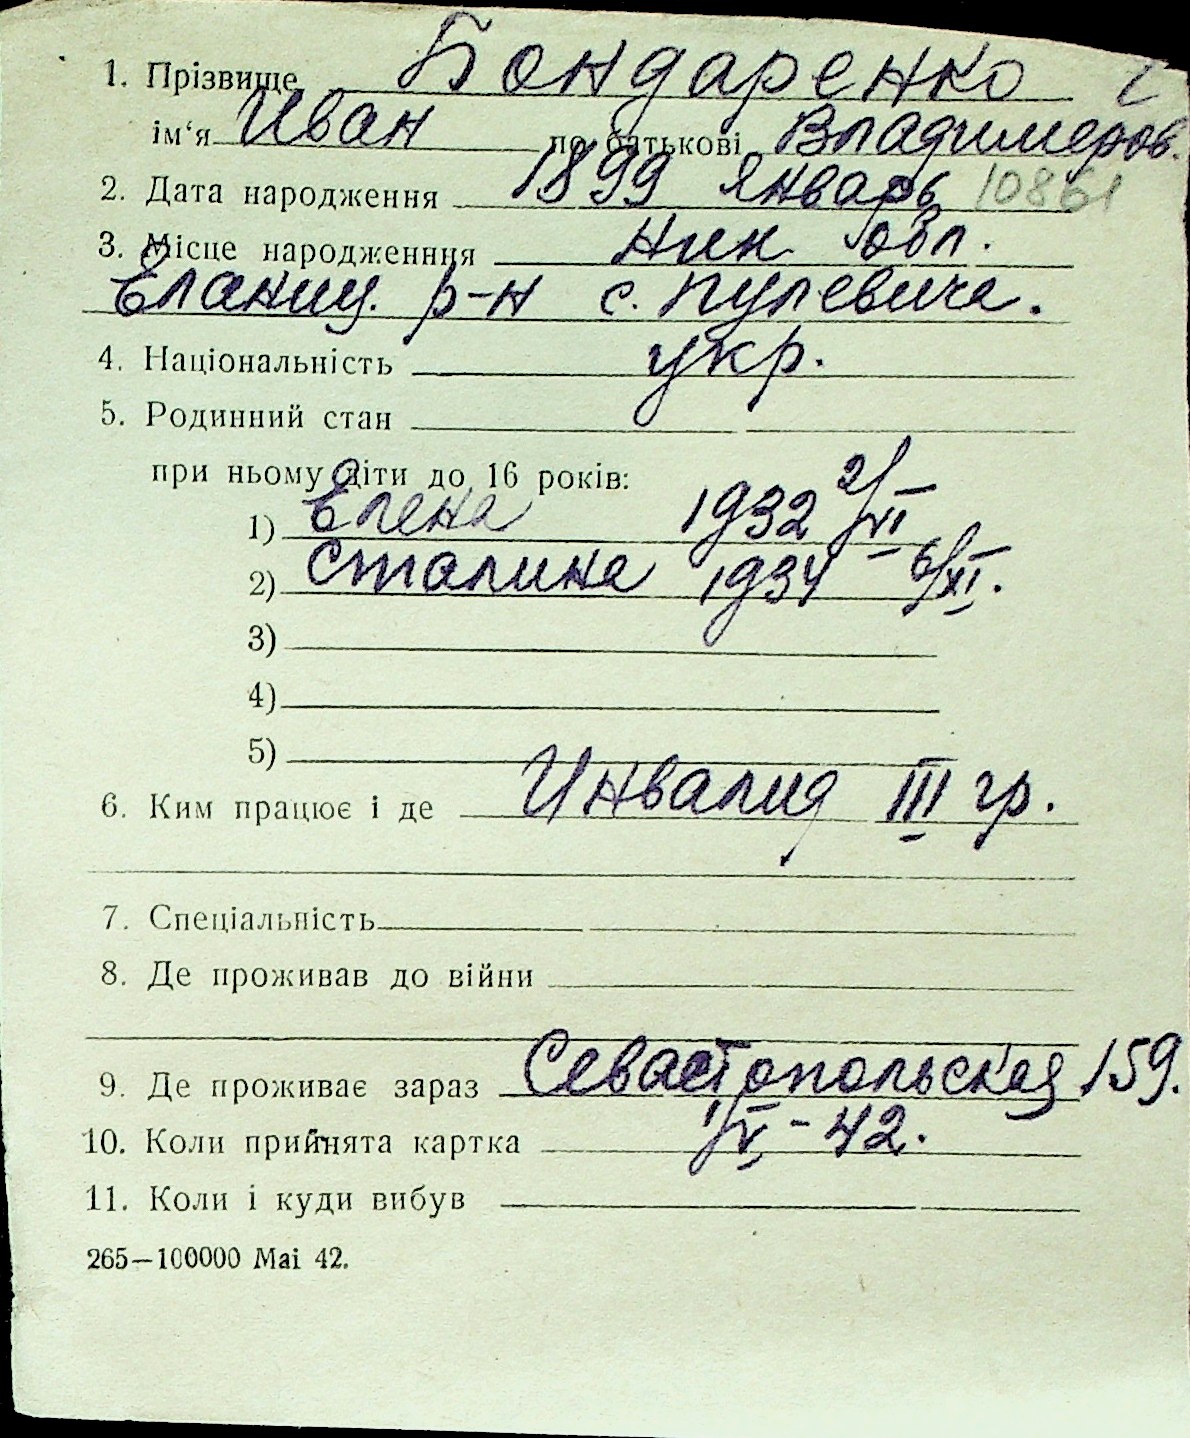 1. Прізвище Бондаренко
ім‘я Иван по батькові Владимеров.
2. Дата народження 1899 Январь 10861
3. Місце народженння Ник обл.
Еланиц. р-н с. Пулевича.
4. Національність укр.
5. Родинний стан
при ньому діти до 16 років:
1) Елена 1932 2/VI
2) Сталина 1934 6/XI.
3)
4)
5)
6. Ким працює і де Инвалид III гр.
7. Спеціальність
8. Де проживав до війни
9. Де проживає зараз Севастопольская 159.
10. Коли прийнята картка 1/V-42.
11. Коли і куди вибув
265—100000 Mai 42.